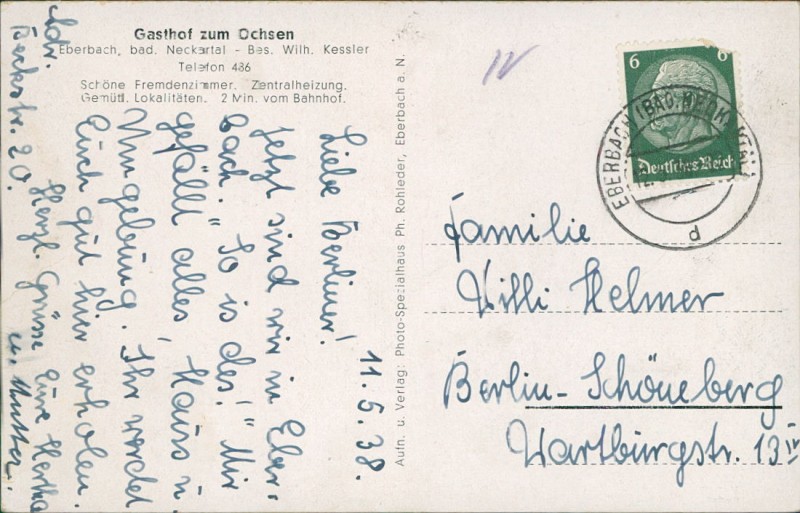 Gasthof zum Ochsen
Eberbach, bad. Neckartal - Bes. Wilh. Kessler
Telefon 486
Schöne Fremdenzimmer. Zentralheizung.
Gemütl. Lokalitäten. 2 Min. vom Bahnhof.
11.5.38.
Liebe Berliner!
Jetzt sind wir in Eber-
bach. "So is des!" Mir
gefällt alles, Haus u.
Umgebung. Ihr werdet
Euch gut hier erholen.
Herzl. Grüsse Eure Hertha
u. Mutter.
Adr.
Beckstr. 20.
Aufn. u. Verlag: Photo-Spezialhaus Ph. Rohleder, Eberbach a. N.
IV
6 6
Deutsches Reich
EBERBACH (BAD. NECKARTAL)
d
Familie
Willi Helmer
Berlin-Schöneberg
Wartburgstr. 13 IV